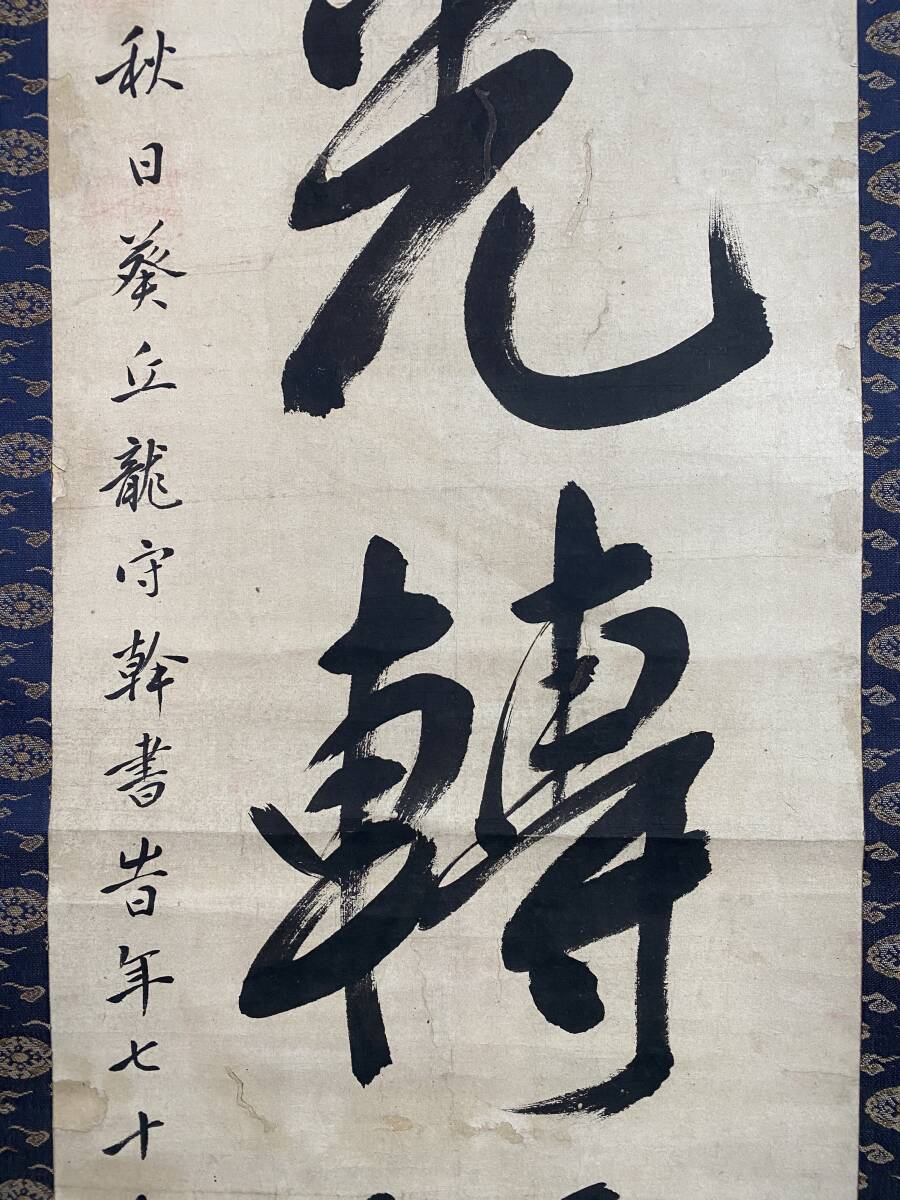 光轉
秋日葵丘龍守幹書旹年七十